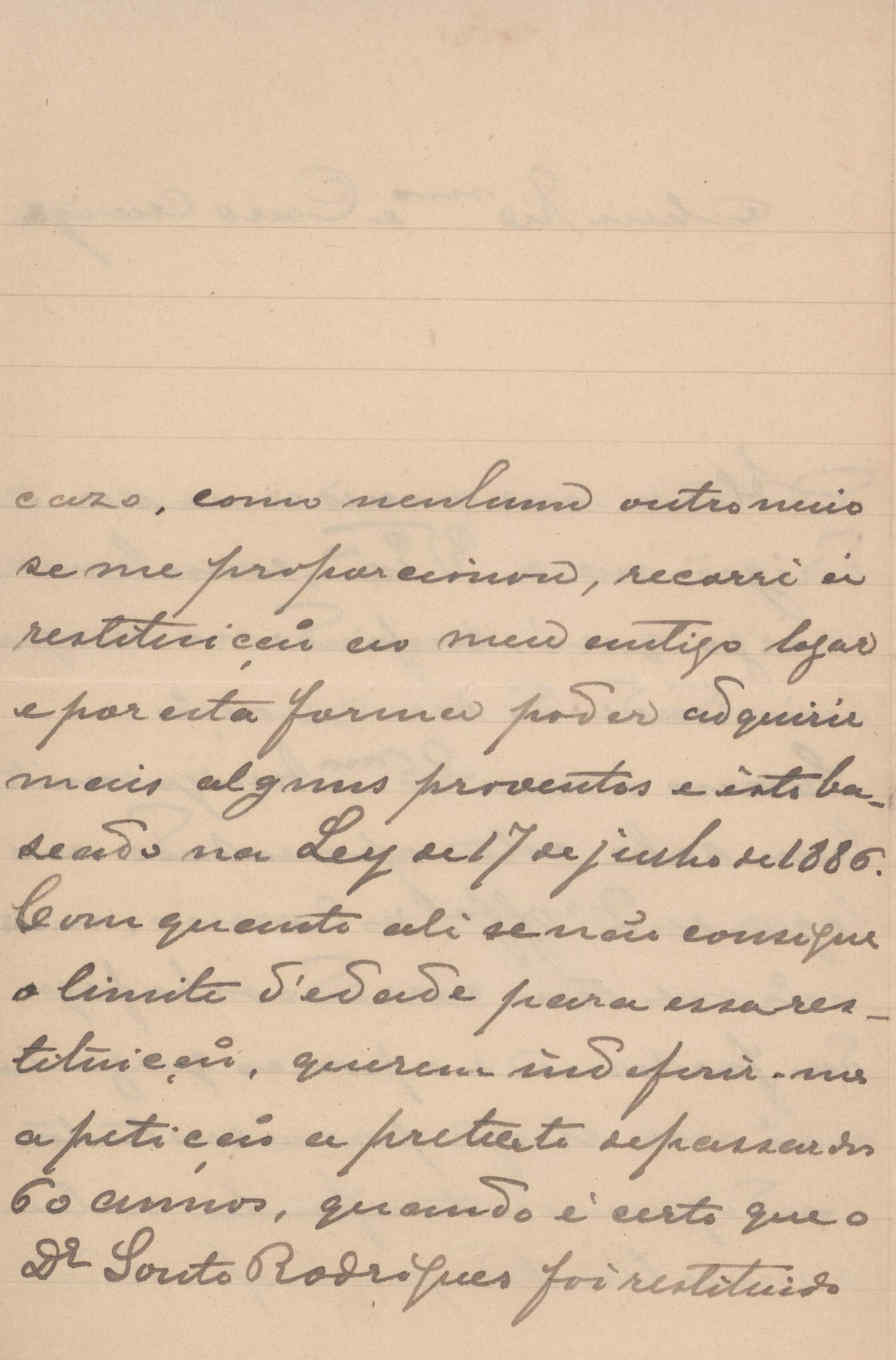 cazo, como nenhum outro meio
se me proporcionou, recorri á
restituição ao meu antigo logar
e por esta forma poder adquirir
mais alguns proventos e isto ba-
seado na Ley de 17 de junho de 1886.
Com quanto ali se não consigue
o limite d'edade para essa res-
tituição, querem indeferir-me
a petição a pretexto de passar dos
60 annos, quando é certo que o
Dr Souto Rodrigues foi restituido